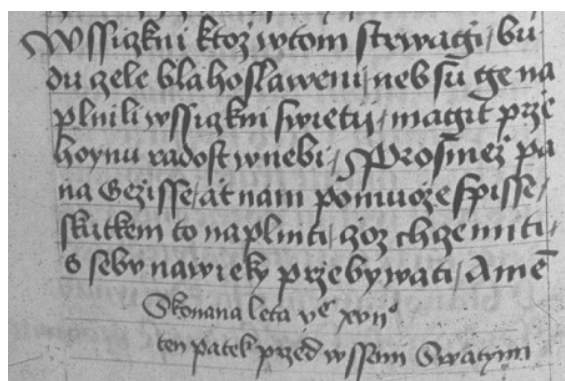 Wssiczkni ktoz wtom strwagi / bu
du zele blahoslaweni / neb su ge na
plnili wssiczkni swietij / magit prze
hoynu radost wnebi / Prosmez pa
na Gezisse / at nam pomuoze spisse /
skutkem to naplniti / goz chze miti /
s sebu nawieky przebywati / Amen
Skonana leta vc xvii
ten patek przed wssem Swatym